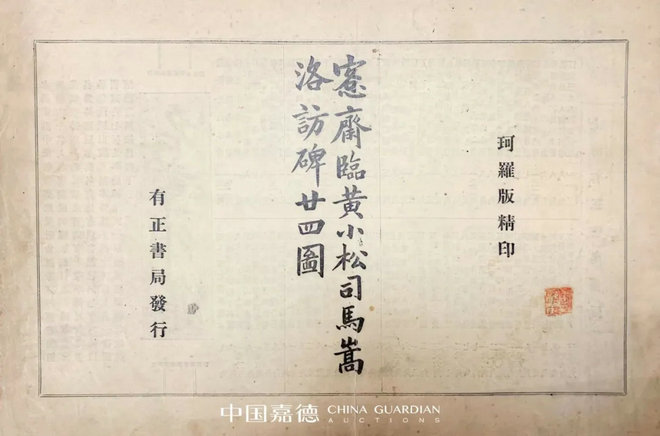 珂羅版精印
愙齋臨黃小松司馬嵩
洛訪碑廿四圖
有正書局發行
中国嘉德 CHINA GUARDIAN
AUCTIONS